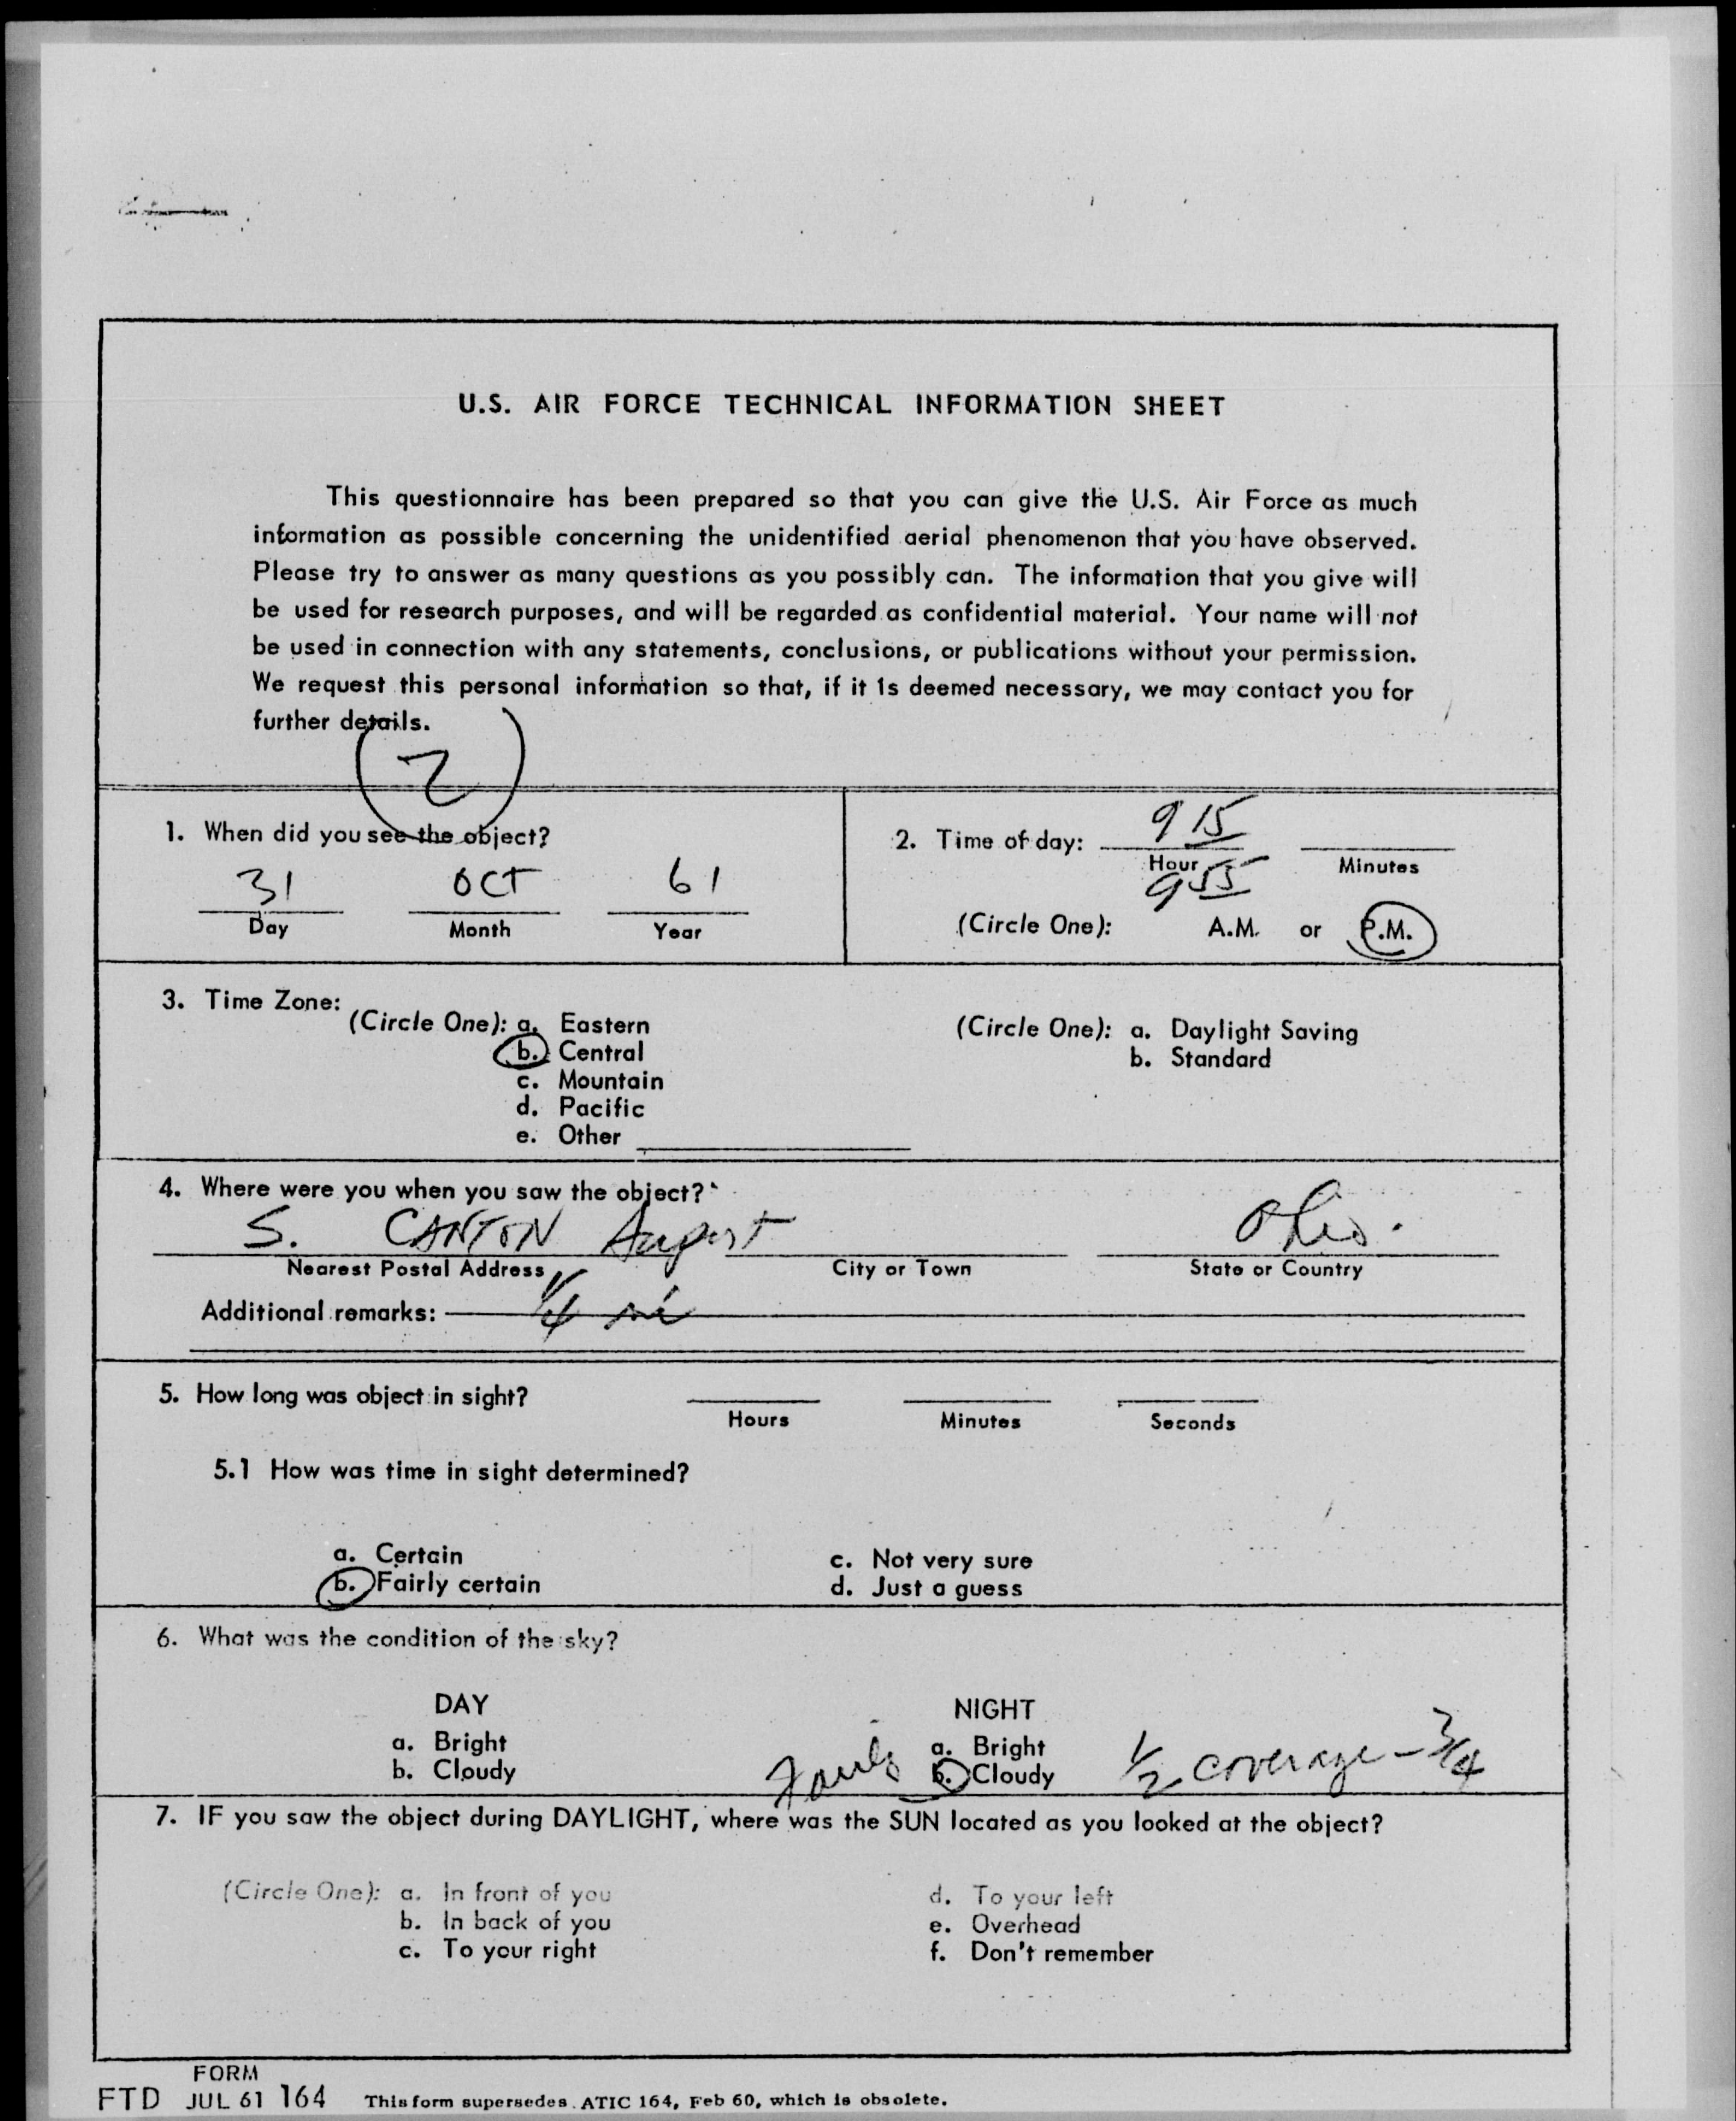 U.S. AIR FORCE TECHNICAL INFORMATION SHEET
This questionnaire has been prepared so that you can give the U.S. Air Force as much
information as possible concerning the unidentified aerial phenomenon that you have observed.
Please try to answer as many questions as you possibly can. The information that you give will
be used for research purposes, and will be regarded as confidential material. Your name will not
be used in connection with any statements, conclusions, or publications without your permission.
We request this personal information so that, if it is deemed necessary, we may contact you for
further details.
2
1. When did you see the object?
31 OCT 61
Day Month Year
2. Time of day: 9 15
Hour Minutes
9 55
(Circle One): A.M. or P.M.
3. Time Zone:
(Circle One): a. Eastern
b. Central
c. Mountain
d. Pacific
e. Other
(Circle One): a. Daylight Saving
b. Standard
4. Where were you when you saw the object?
S. CANTON Ohio.
Nearest Postal Address City or Town State or Country
Additional remarks: 1/4 mi
5. How long was object in sight?
Hours Minutes Seconds
5.1 How was time in sight determined?
a. Certain
b. Fairly certain
c. Not very sure
d. Just a guess
6. What was the condition of the sky?
DAY
a. Bright
b. Cloudy
NIGHT
a. Bright
b. Cloudy 1/2 coverage - 3/4
7. IF you saw the object during DAYLIGHT, where was the SUN located as you looked at the object?
(Circle One): a. In front of you
b. In back of you
c. To your right
d. To your left
e. Overhead
f. Don't remember
FORM
FTD JUL 61 164 This form supersedes ATIC 164, Feb 60, which is obsolete.